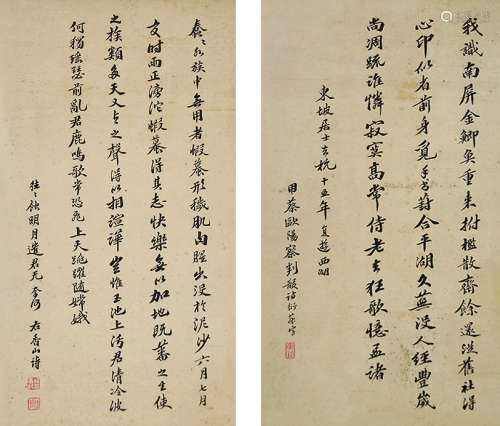 我識南屏金鯽魚重來拊檻散齋餘還從舊社得
心印似省前身覓手書葑合平湖久蕪没人經豐歲
尚凋疏誰憐寂寞高常侍老去狂歌憶孟諸
東坡居士去杭十五年复遊西湖
用蔡歐陽察判韻
蠢〻水族中無用者蝦蟇形穢肌肉腥出没於泥沙六月七月
交時雨正滂沱蝦蟇得其志快樂無以加地既蕃之生使
之族類多天又与之聲得以相諠譁豈惟玉池上污君清冷波
何獨瑶瑟前亂君鹿鳴歌常恐飛上天跳躍隨嫦娥
往〻蝕明月遣君无奈何 右香山詩